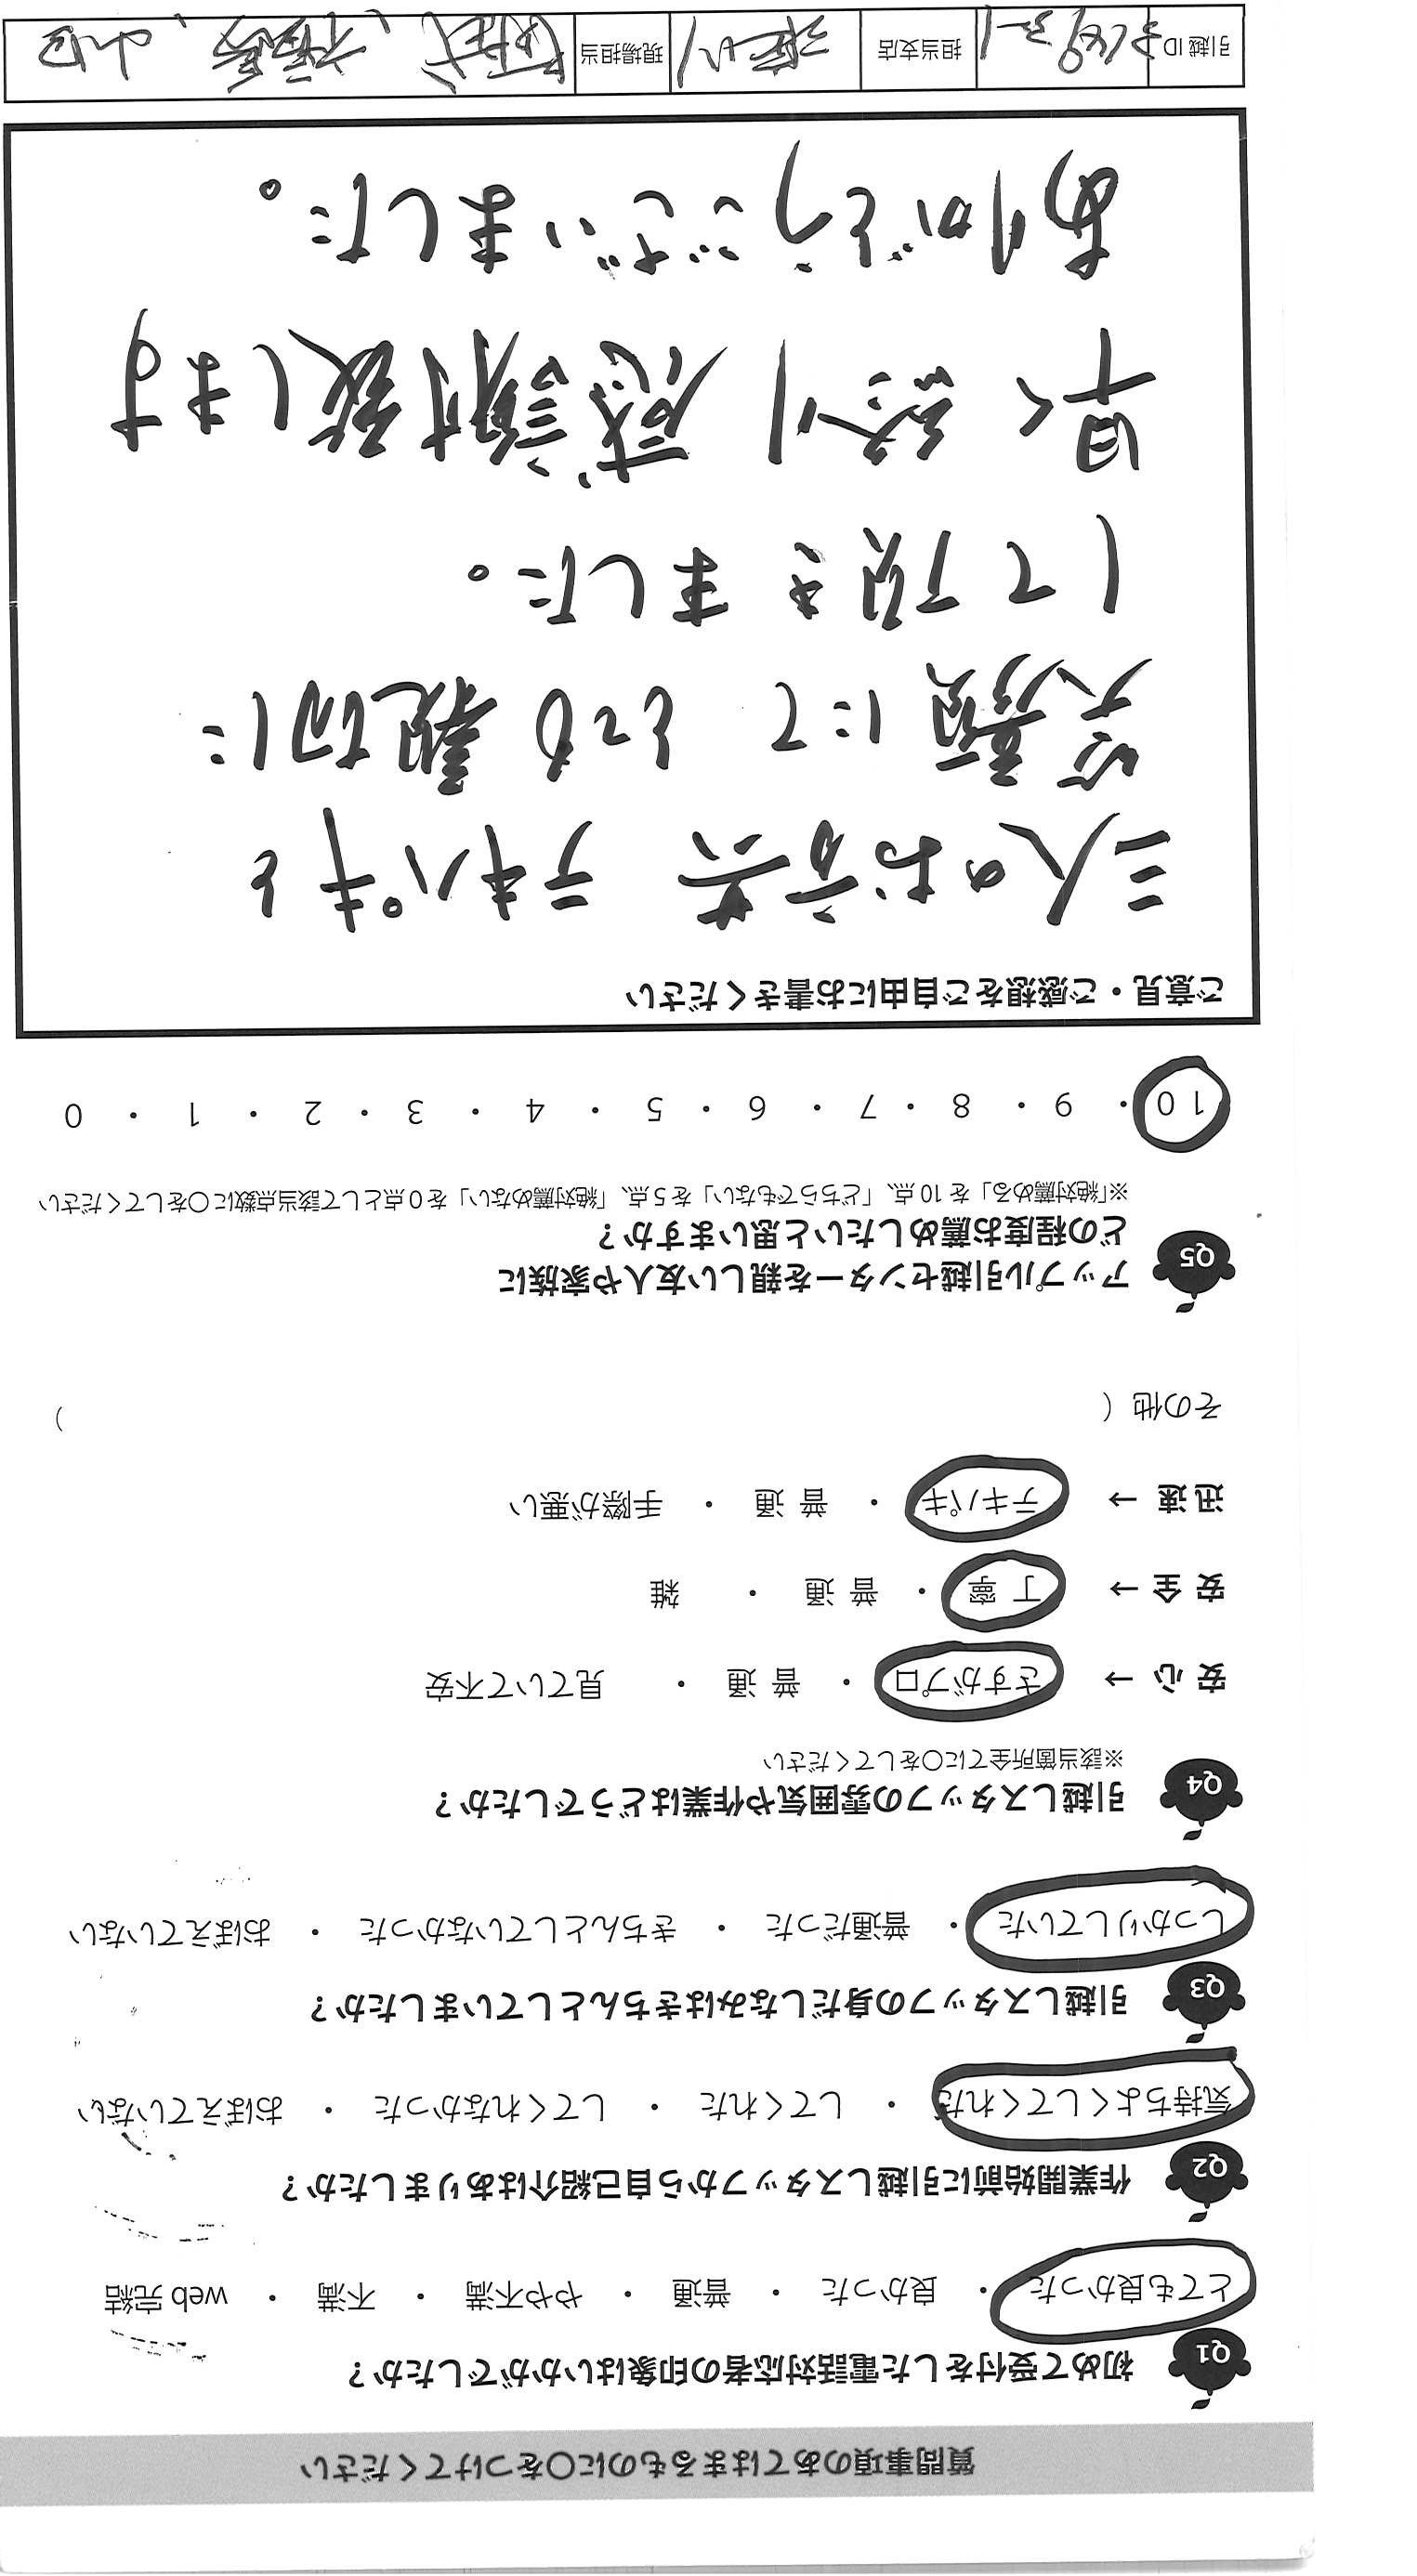 質問事項のあてはまるものに〇をつけてください
Q1 初めて受付をした電話対応者の印象はいかがでしたか？
とても良かった ・ 良かった ・ 普通 ・ やや不満 ・ 不満 ・ web 完結
Q2 作業開始前に引越しスタッフから自己紹介はありましたか？
気持ちよくしてくれた ・ してくれた ・ してくれなかった ・ おぼえていない
Q3 引越しスタッフの身だしなみはきちんとしていましたか？
しっかりしていた ・ 普通だった ・ きちんとしていなかった ・ おぼえていない
Q4 引越しスタッフの雰囲気や作業はどうでしたか？
※該当箇所全てに〇をしてください
安 心 → さすがプロ ・ 普 通 ・ 見ていて不安
安 全 → 丁 寧 ・ 普 通 ・ 雑
迅 速 → テキパキ ・ 普 通 ・ 手際が悪い
その他（ ）
Q5 アップル引越センターを親しい友人や家族に
どの程度お薦めしたいと思いますか？
※「絶対薦める」を 10 点、「どちらでもない」を 5 点、「絶対薦めない」を 0 点として該当点数に〇をしてください
10 ・ 9 ・ 8 ・ 7 ・ 6 ・ 5 ・ 4 ・ 3 ・ 2 ・ 1 ・ 0
ご意見・ご感想をご自由にお書きください
三人のお方共 テキパキと
笑顔にて とても親切に
して頂きました。
早く終り 感謝致します
ありがとうございました。
引越 ID 担当支店 現場担当 山口